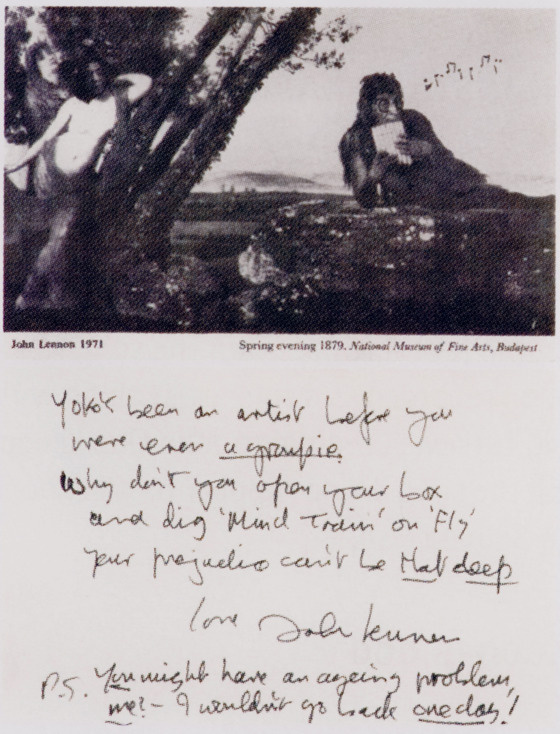 John Lennon 1971
Spring evening 1879. National Museum of Fine Arts, Budapest
Yoko's been an artist before you
were even a groupie.
Why don't you open your box
and dig 'Mind Train' on 'Fly'
your prejudice can't be that deep
love John Lennon
P.S. You might have an ageing problem,
me? - I wouldn't go back one day!